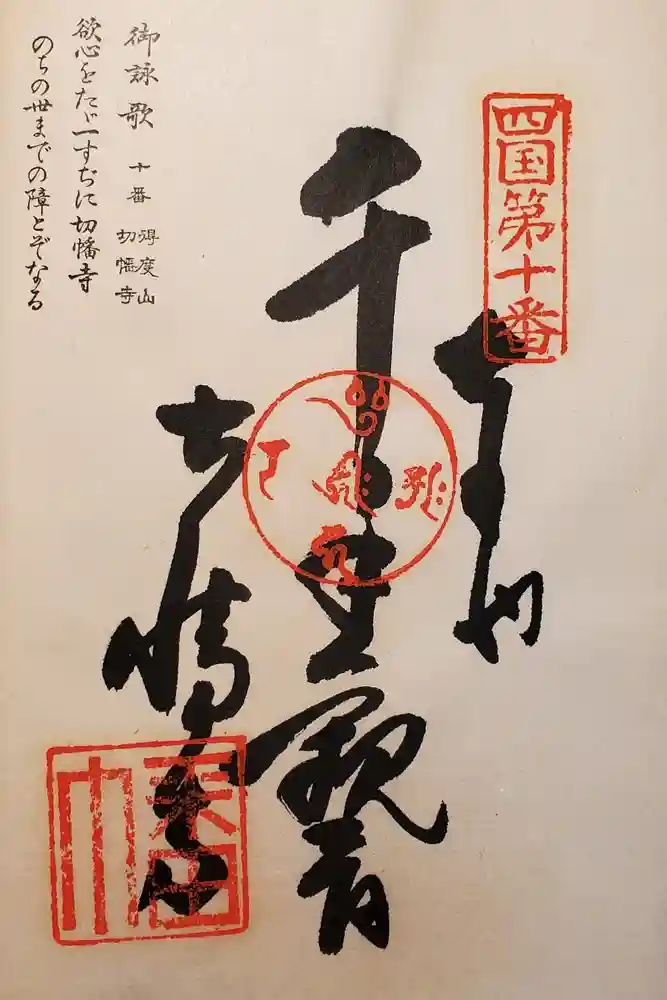 四国第十番
奉納
千手観音
切幡寺
幡
御詠歌 十番 得度山 切幡寺
欲心をたゞ一すぢに切幡寺
のちの世までの障とぞなる